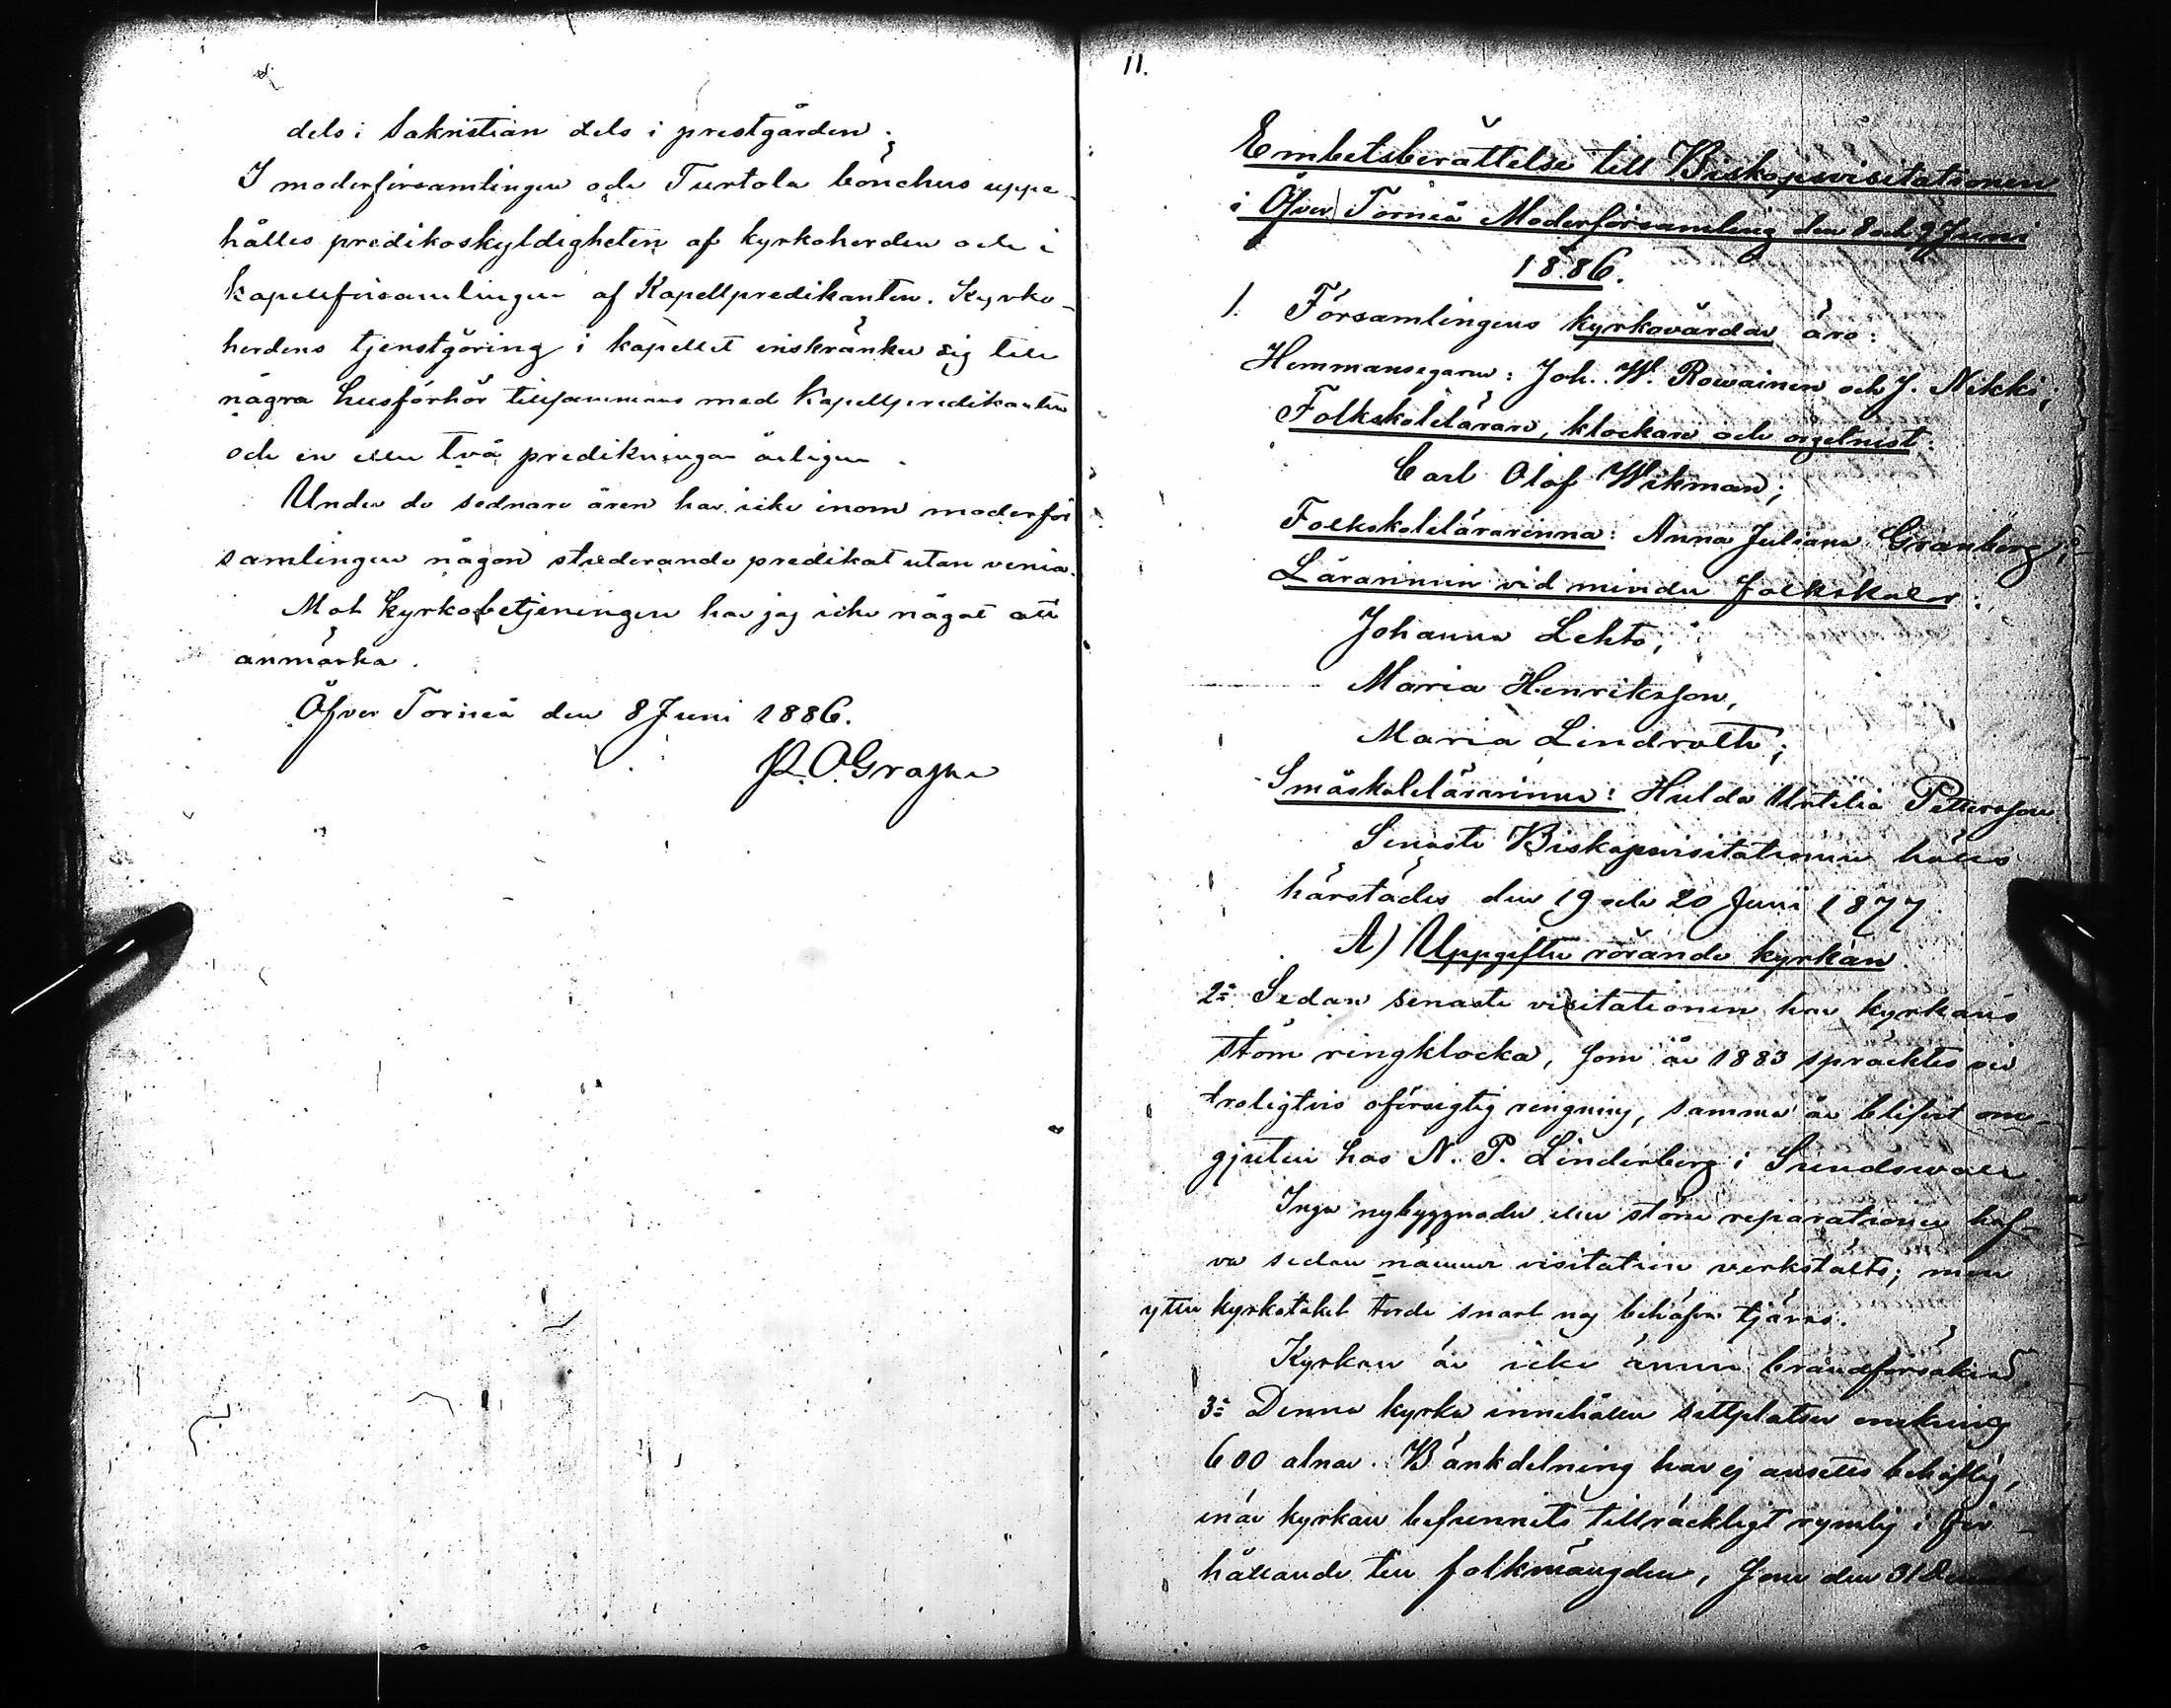 dels i Sakristian dels i prestgården;
I moderförsamlingen och Turtola bönehus uppe-
hålles predikoskyldigheten af kyrkoherden och i
kapellförsamlingen af Kapellpredikanten. Kyrko-
herdens tjenstgöring i kapellet inskränker sig till
några husförhör tillsammans med Kapellpredikanten
och en eller två predikningar årligen.
Under de sednare åren har icke inom moderför
samlingen någon studerande predikat utan venia.
Mot kyrkobetjeningen har jag icke något att
anmärka.
Öfver Torneå den 8 Juni 1886.
P. O. Grape
11.
Embetsberättelse till Biskopsvisitationen
i Öfver Torneå Moderförsamling den 8 och 9 Juni
1886.
1. Församlingens kyrkovärdar äro:
Hemmansegarne: Joh. W. Rowainen och J. Nikki;
Folkskolelärare, klockare och orgelnist:
Carl Olof Wikman;
Folkskolelärarinna: Anna Juliana Granberg;
Lärarinnor vid mindre folkskolor:
Johanna Lehto,
Maria Henriksson,
Maria Lindroth;
Småskolelärarinna: Hulda Pettersson
Senaste Biskopsvisitationen hölls
härstädes den 19 och 20 Juni 1877
A) Uppgifter rörande kyrkan.
2:o Sedan senaste visitationen har kyrkans
större ringklocka, som år 1883 spräcktes vid
troligtvis oförsigtig ringning, samma år blifvit om-
gjuten hos N. P. Linderberg i Sundswall.
Inga nybyggnader eller större reparationer haf-
va sedan nämnda visitation verkstälts; men
yttre kyrkotaket torde snart nog behöfva tjäras.
Kyrkan är icke ännu brandförsäkrad.
3:o Denna kyrka innehåller sittplatser omkring
600 alnar. Bänkdelning har ej ansetts behöflig,
enär kyrkan befunnits tillräckligt rymlig i för-
hållande till folkmängden, som den 31 December